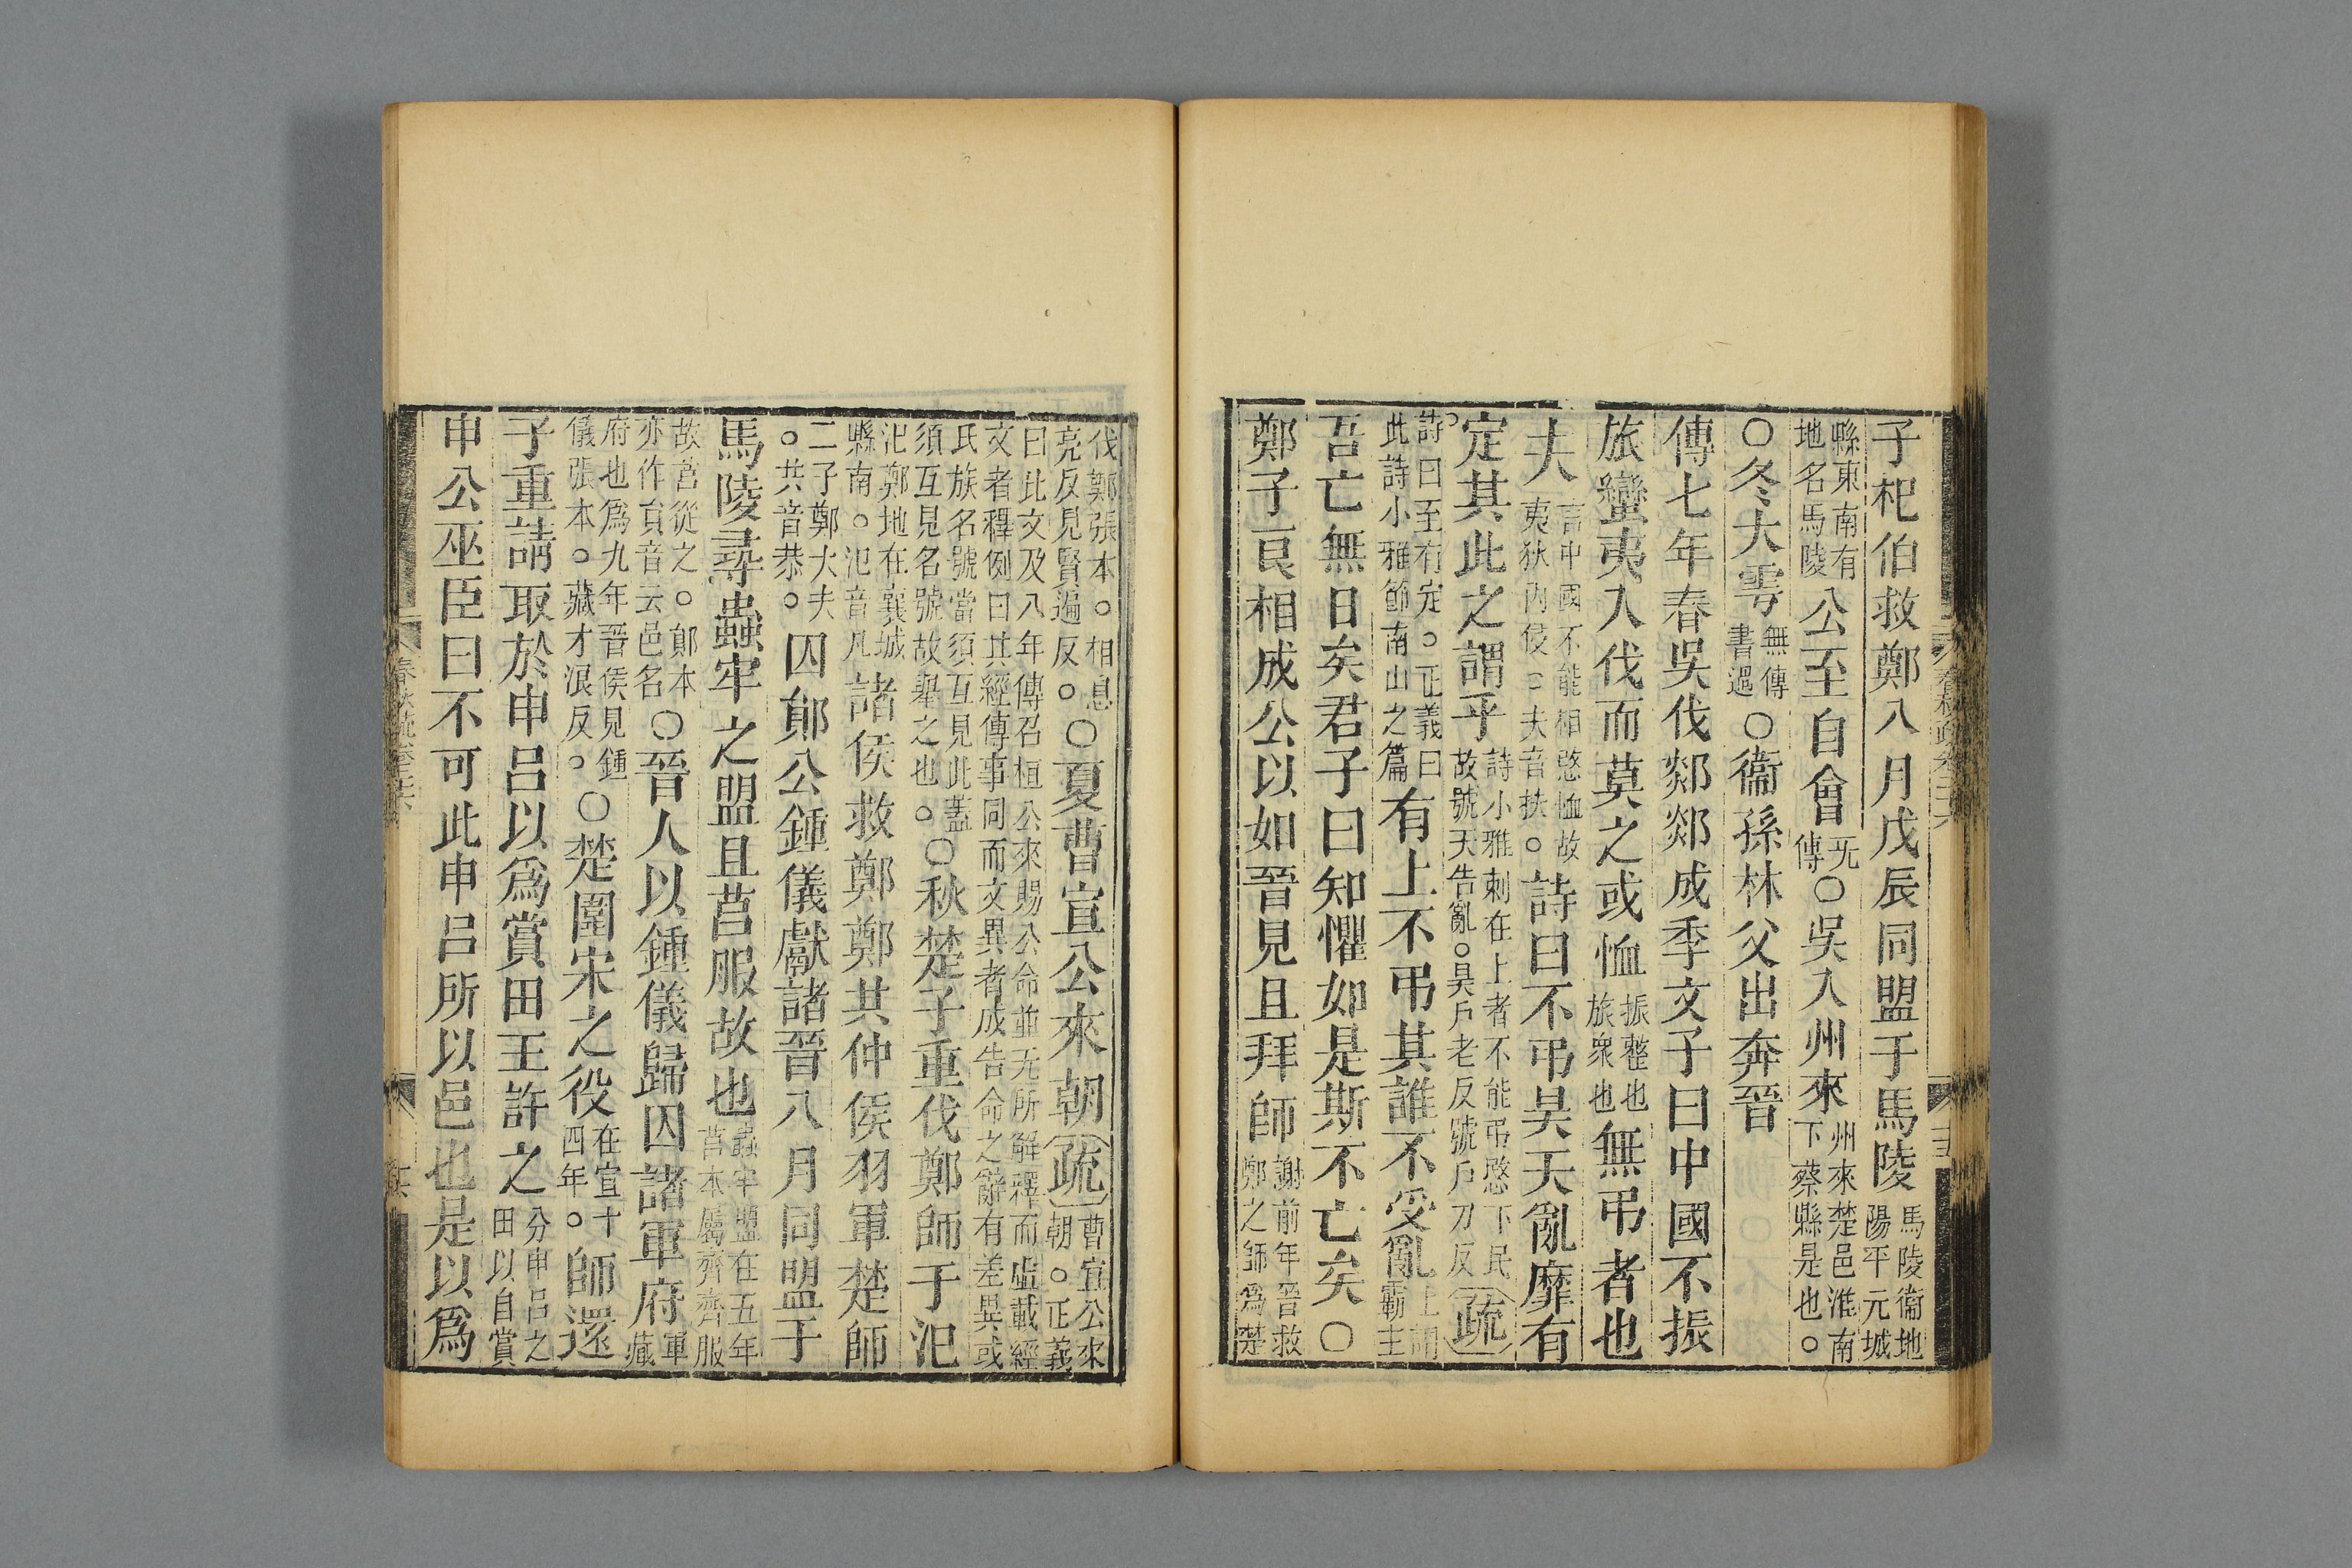 子杞伯救鄭八月戊辰同盟于馬陵馬陵衞地陽平元城
縣東南有地名馬陵公至自會无傳〇吳入州來州來楚邑淮南下蔡縣是也〇
〇冬大雩無傳書過〇衞孫林父出奔晉
傳七年春吳伐郯郯成季文子曰中國不振
旅蠻夷入伐而莫之或恤振整也旅衆也無弔者也
夫言中國不能相愍恤故夷狄內侵〇夫音扶〇詩曰不弔昊天亂靡有
定其此之謂乎詩小雅刺在上者不能弔愍下民故號天告亂〇昊戶老反號戶刀反疏
詩曰至有定〇正義曰此詩小雅節南山之篇有上不弔其誰不受亂上謂霸主
吾亡無日矣君子曰知懼如是斯不亡矣〇
鄭子良相成公以如晉見且拜師謝前年晉救鄭之師爲楚
伐鄭張本〇相息亮反見賢遍反〇〇夏曹宣公來朝疏曹宣公來朝〇正義
曰此文及八年傳召桓公來賜公命並无所解釋而虛載經文者釋例曰其經傳事同而文異者或告命之辭有差異或
氏族名號當須互見此蓋須互見名號故舉之也〇〇秋楚子重伐鄭師于氾
氾鄭地在襄城縣南〇氾音凡諸侯救鄭鄭共仲侯羽軍楚師
二子鄭大夫〇共音恭〇囚鄖公鍾儀獻諸晉八月同盟于
馬陵尋蟲牢之盟且莒服故也蟲牢盟在五年莒本屬齊齊服
故莒從之〇鄖本亦作員音云邑名〇晉人以鍾儀歸囚諸軍府軍藏
府也爲九年晉侯見鍾儀張本〇藏才浪反〇〇楚圍宋之役在宣十四年〇師還
子重請取於申呂以爲賞田王許之分申呂之田以自賞
申公巫臣曰不可此申呂所以邑也是以爲